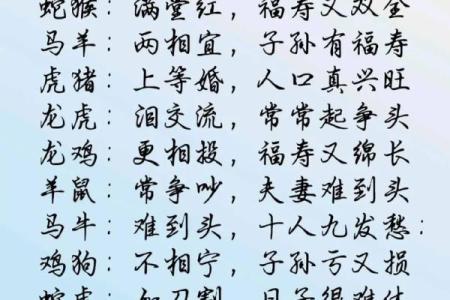 蛇猴：满堂红，福寿又双全
马羊：两相宜，子孙有福寿
虎猪：上等婚，人口真兴旺
龙虎：泪交流，常常起争头
龙鸡：更相投，福寿又绵长
羊鼠：常争吵，夫妻难到头
马牛：难到头，十人九发愁：
鸡狗：不相宁，子孙亏又损
蛇虎：如刀割，日子很难